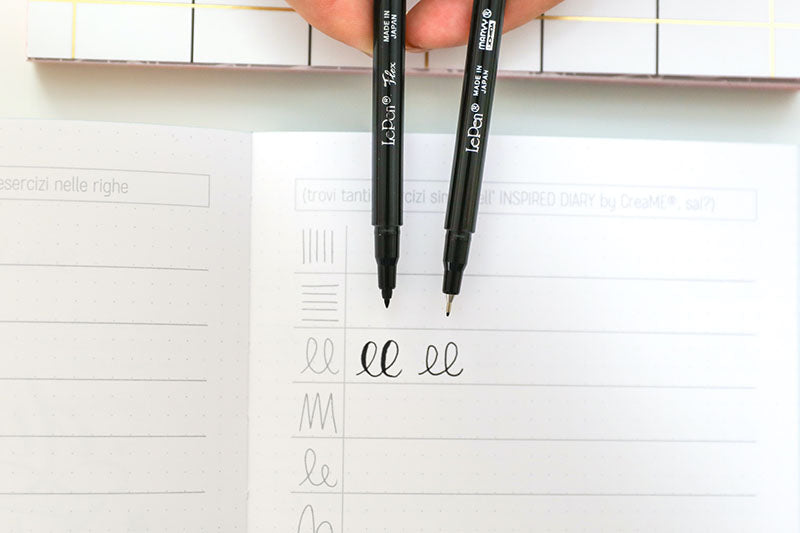 MADE IN
JAPAN
LePen® Flex
marvy®
UCHIDA
MADE IN
JAPAN
LePen®
esercizi nelle righe
(trovi tanti cizi sim ell' INSPIRED DIARY by CreaME®, sai?)
ll ll ll
le